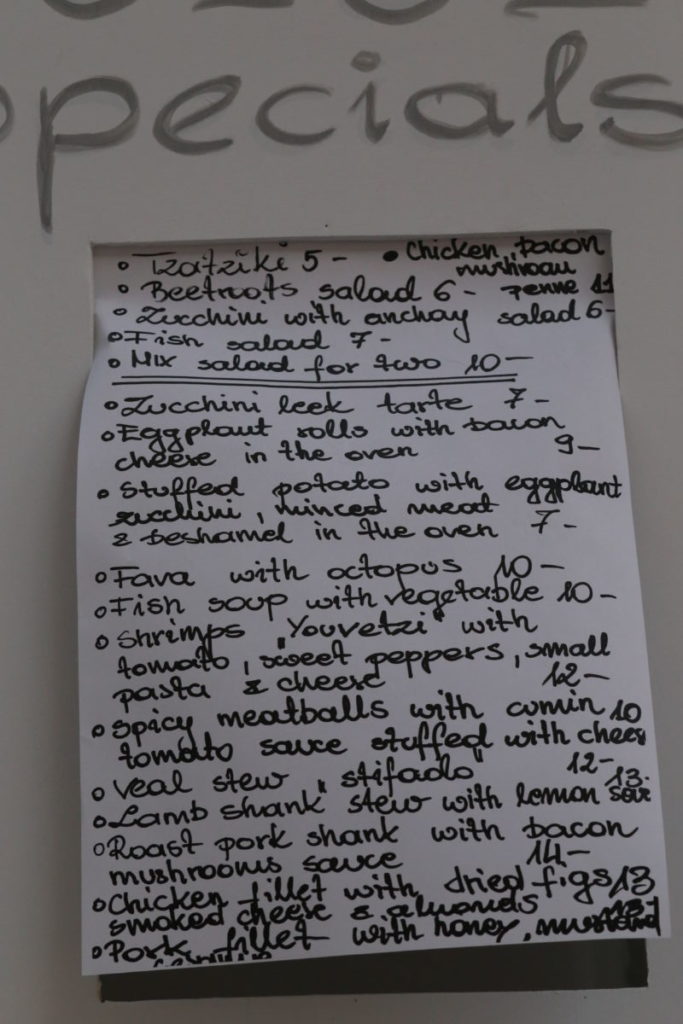 specials
• Tzatziki 5 - • Chicken, bacon
mushroom
• Beetroots salad 6 - penne 11
• Zucchini with anchoy salad 6-
• Fish salad 7 -
• Mix salad for two 10 -
• Zucchini leek tarte 7 -
• Eggplant rolls with bacon
cheese in the oven 9 -
• Stuffed potato with eggplant
zucchini, minced meat
& beshamel in the oven 7 -
• Fava with octopus 10 -
• Fish soup with vegetable 10 -
• Shrimps "Youvetzi" with
tomato, sweet peppers, small
pasta & cheese 12 -
• Spicy meatballs with cumin 10
tomato sauce stuffed with chees
• Veal stew "stifado" 12 -
• Lamb shank stew with lemon 13.-
• Roast pork shank with bacon
mushrooms sauce 14.-
• Chicken fillet with dried figs 13
smoked cheese & almonds
• Pork fillet with honey, mustard